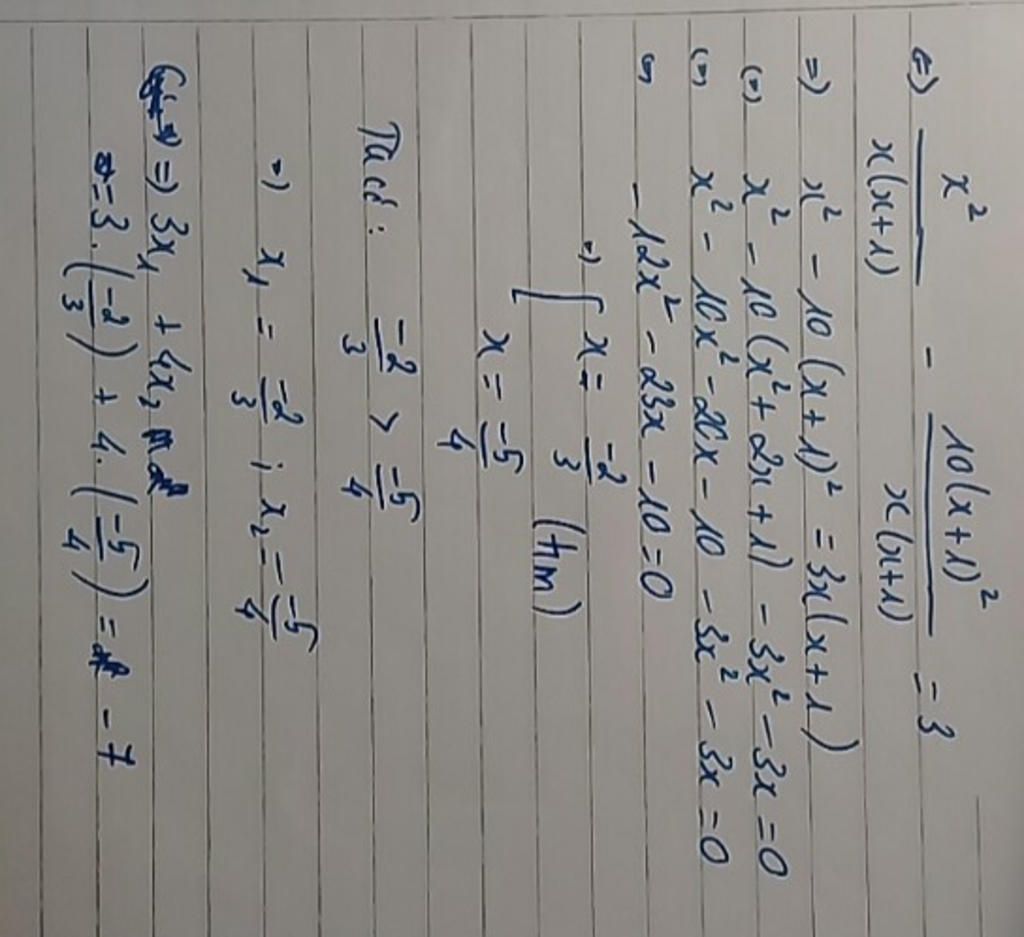 ⇔ x²/x(x+1) - 10(x+1)²/x(x+1) = 3
=) x² - 10(x+1)² = 3x(x+1)
(=) x² - 10(x² + 2x + 1) - 3x² - 3x = 0
(=) x² - 10x² - 20x - 10 - 3x² - 3x = 0
(=) -12x² - 23x - 10 = 0
=) [ x = -2/3 (tm)
x = -5/4
Ta có: -2/3 > -5/4
=) x₁ = -2/3 ; x₂ = -5/4
=) 3x₁ + 4x₂
= 3.(-2/3) + 4.(-5/4) = -7